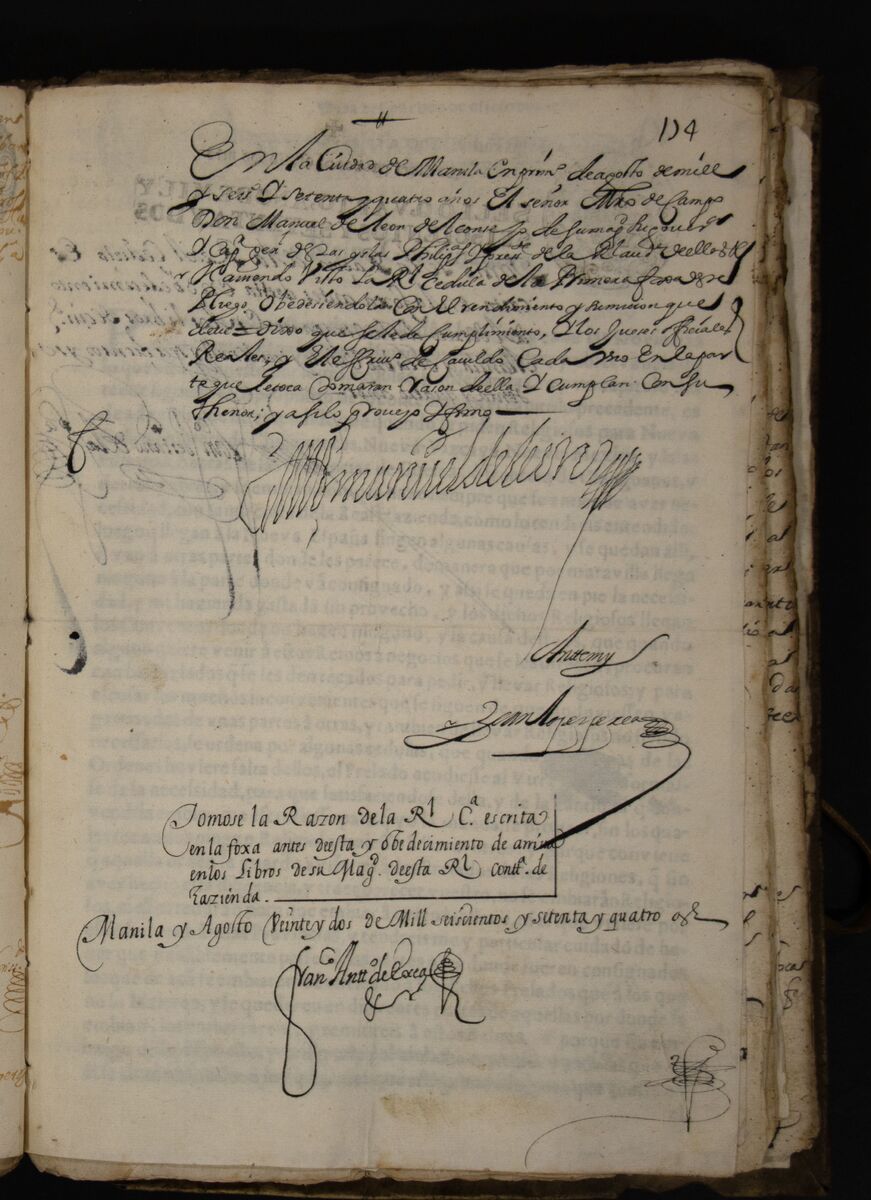 114
En la Ciudad de Manila en prim.º de agosto de mill
y seis.s y setenta y quatro años El señor M.ro de Campo
Don Manuel de Leon del conse jo de su mag.d su gover.or
y Cap.n gen.l de las yslas Philip.s y presi.te de la R.l aud.a de ellas
haviendo visto La R.l cedula de la Primera foxa de este
Pliego obedesiendola con El rendimiento y sumision que
deve = dixo que se le de cumplimiento, y los jueses ofiçiales
Reales; y El essriu.º de Cavildo Cada vno En la par
te que le toca tomaran rason de ella y cumplan con su
thenor; y assi lo proveyo y firmo
D. manuel de leon
Ante my
Juan
Tomose la Razon de la R.l C.ª escrita
en la foxa antes deesta y obedecimiento de arriua
en los Libros de su Mag.d deesta R.l cont.ª de
hazienda.
Manila y Agosto Veinte y dos de Mill seiscientos y setenta y quatro as
Fran.co Antt.º de